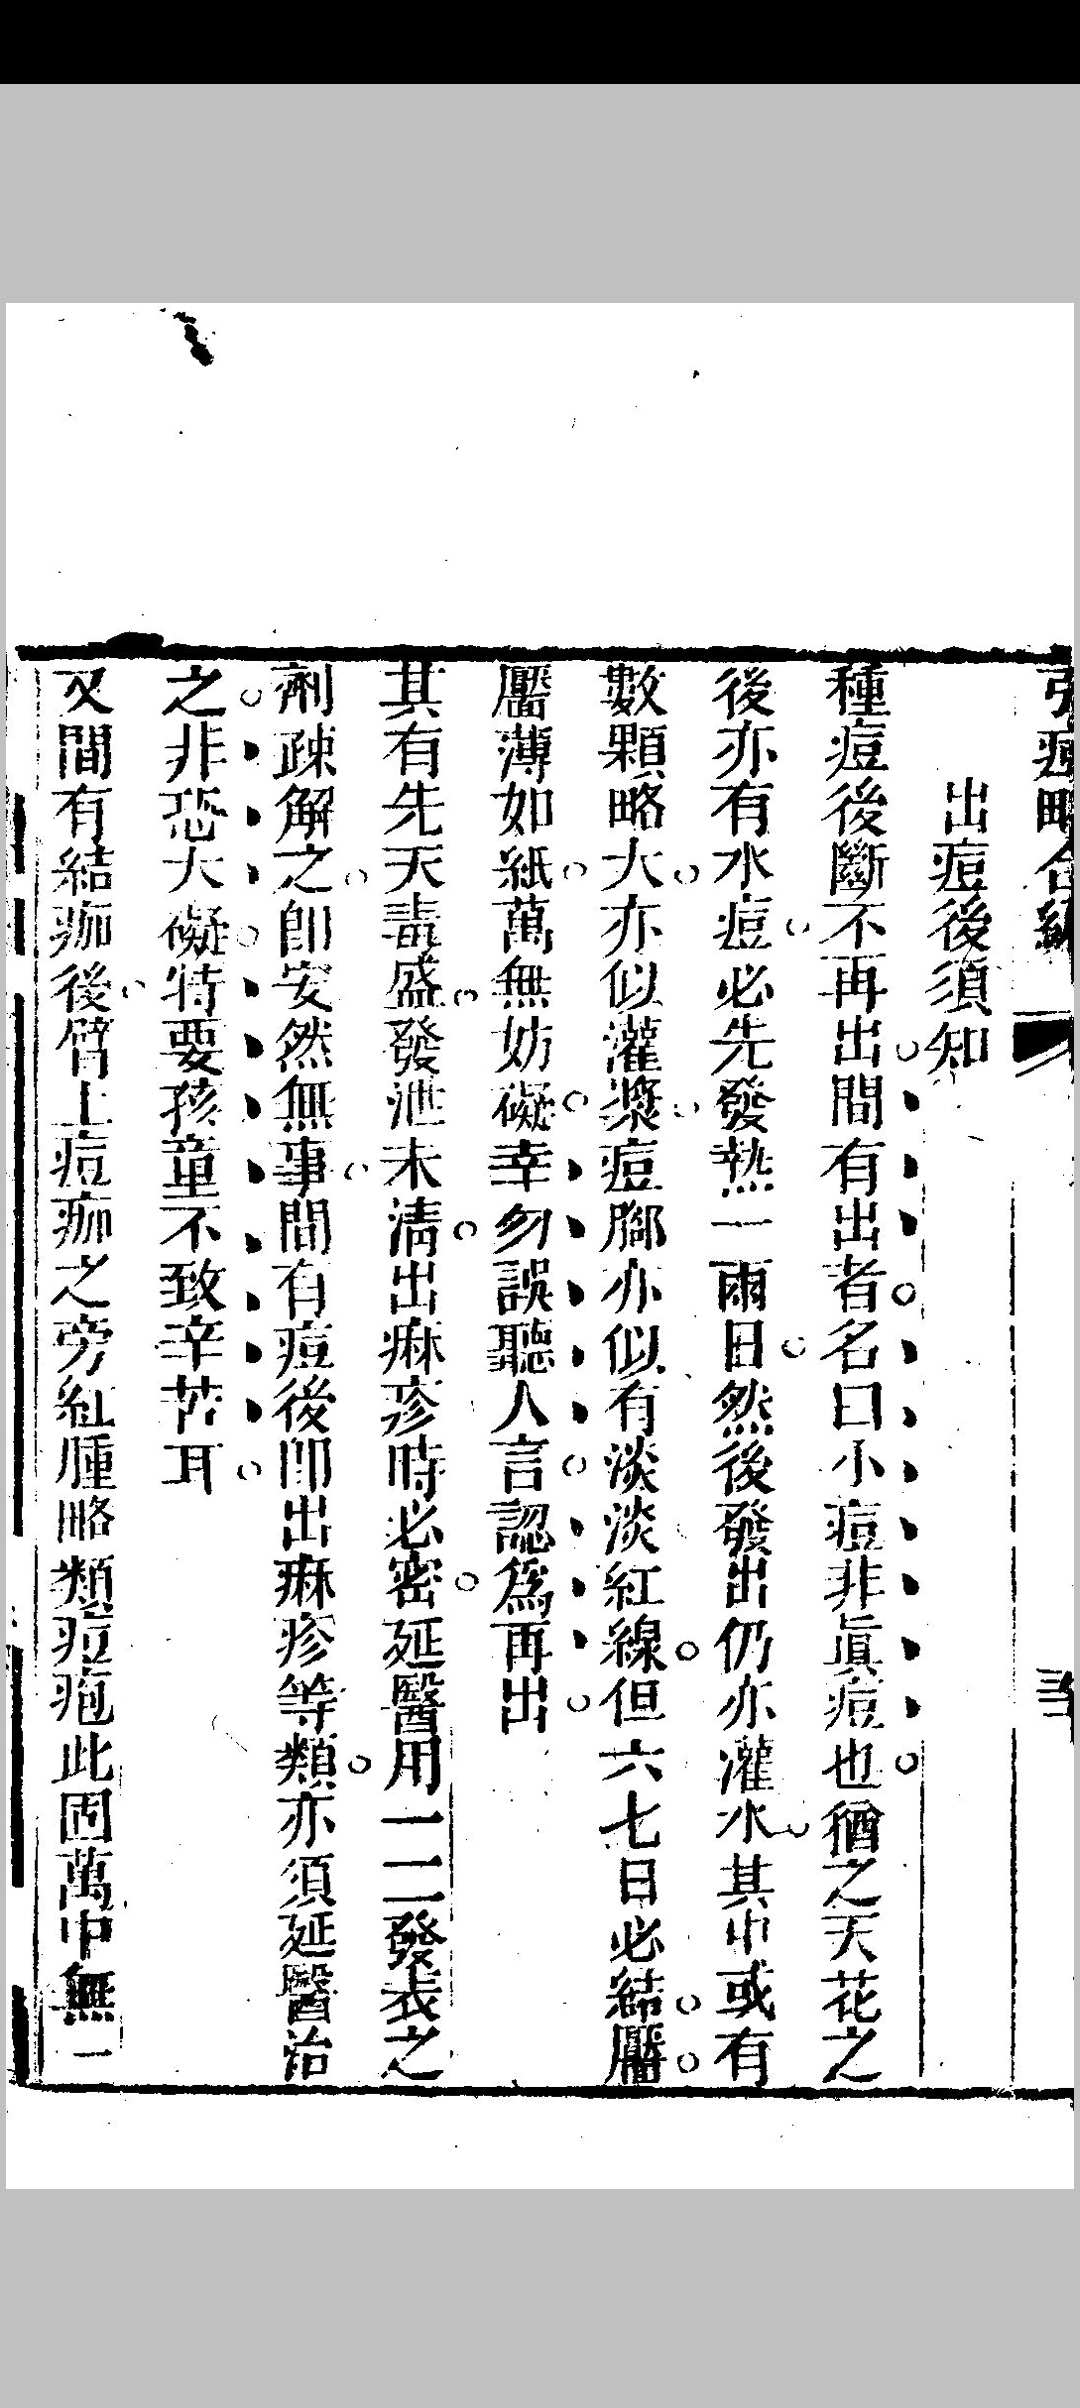 引痘略合編
出痘後須知
種痘後斷不再出間有出者名曰小痘非眞痘也猶之天花之
後亦有水痘必先發熱一兩日然後發出仍亦灌水其中或有
數顆略大亦似灌漿痘腳亦似有淡淡紅線但六七日必結靨
靨薄如紙萬無妨礙幸勿誤聽人言認爲再出
其有先天毒盛發泄未淸出痳疹時必密延醫用一二發表之
劑疎解之卽安然無事間有痘後卽出痳疹等類亦須延醫治
之非恐大礙特要孩童不致辛苦耳
又間有結痂後臂上痘痂之旁紅腫略類痘疱此固萬中無一